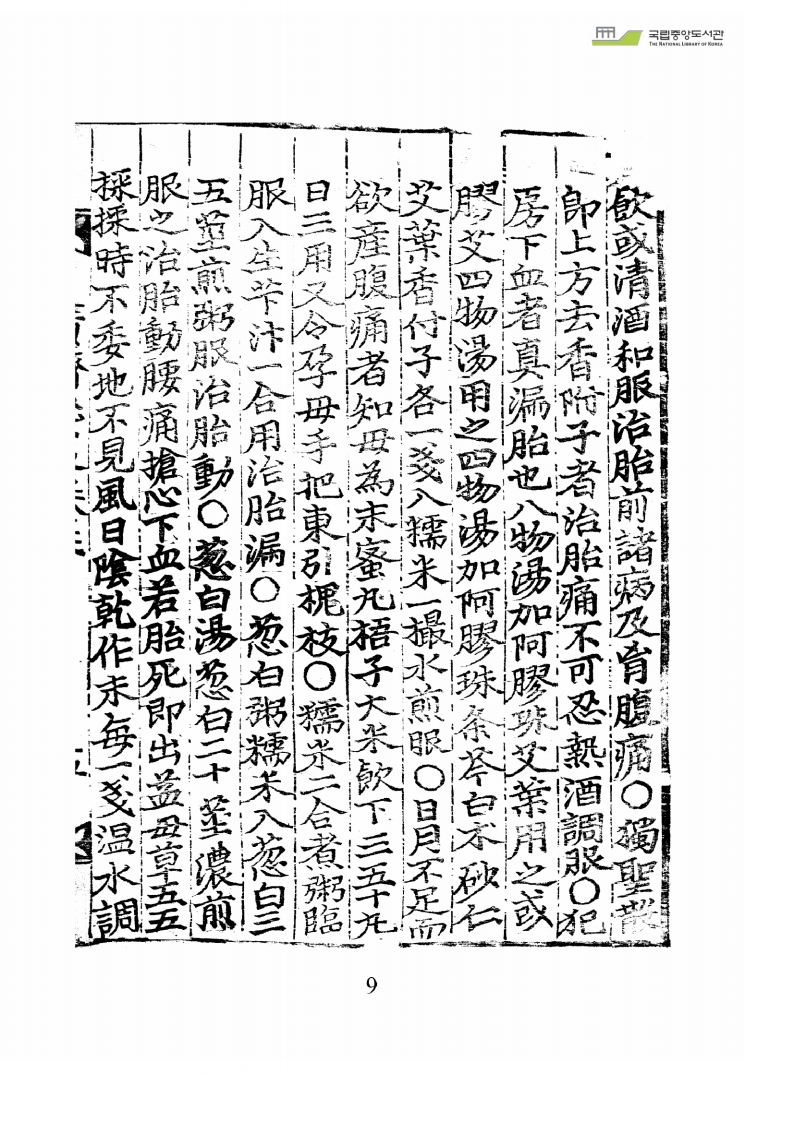 국립중앙도서관
THE NATIONAL LIBRARY OF KOREA
飮或淸酒和服治胎前諸病及胷腹痛〇獨聖散
卽上方去香附子者治胎痛不可忍熱酒調服〇犯
房下血者眞漏胎也八物湯加阿膠珠艾葉用之或
膠艾四物湯用之四物湯加阿膠珠条芩白朮砂仁
艾葉香付子各一戔入糯米一撮水煎服〇日月不足而
欲産腹痛者知母為末蜜丸梧子大米飮下三五十丸
日三用又令孕母手把東引槐枝〇糯米二合煮粥臨
服入生芐汁一合用治胎漏〇葱白粥糯米入葱白三
五莖煎粥服治胎動〇葱白湯葱白二十莖濃煎
服之治胎動腰痛搶心下血若胎死即出益母草五五
採採時不委地不見風日陰乾作末每一戔温水調
9